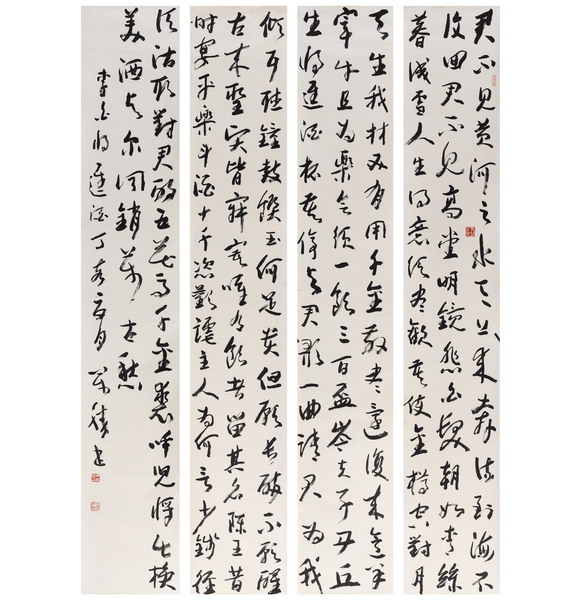 君不見黃河之水天上来奔流到海不
復回君不見高堂明鏡悲白髮朝如青絲
暮成雪人生得意須盡歡莫使金樽空對月
天生我材必有用千金散盡還復来烹羊
宰牛且為樂會須一飲三百盃岑夫子丹丘
生將進酒杯莫停與君歌一曲請君為我
傾耳聽鐘鼓饌玉何足貴但願長醉不願醒
古来聖賢皆寂寞唯有飲者留其名陳王昔
時宴平樂斗酒十千恣歡謔主人為何言少錢徑
須沽取對君酌五花馬千金裘呼兒將出換
美酒與爾同銷萬古愁
李白將進酒丁酉月書